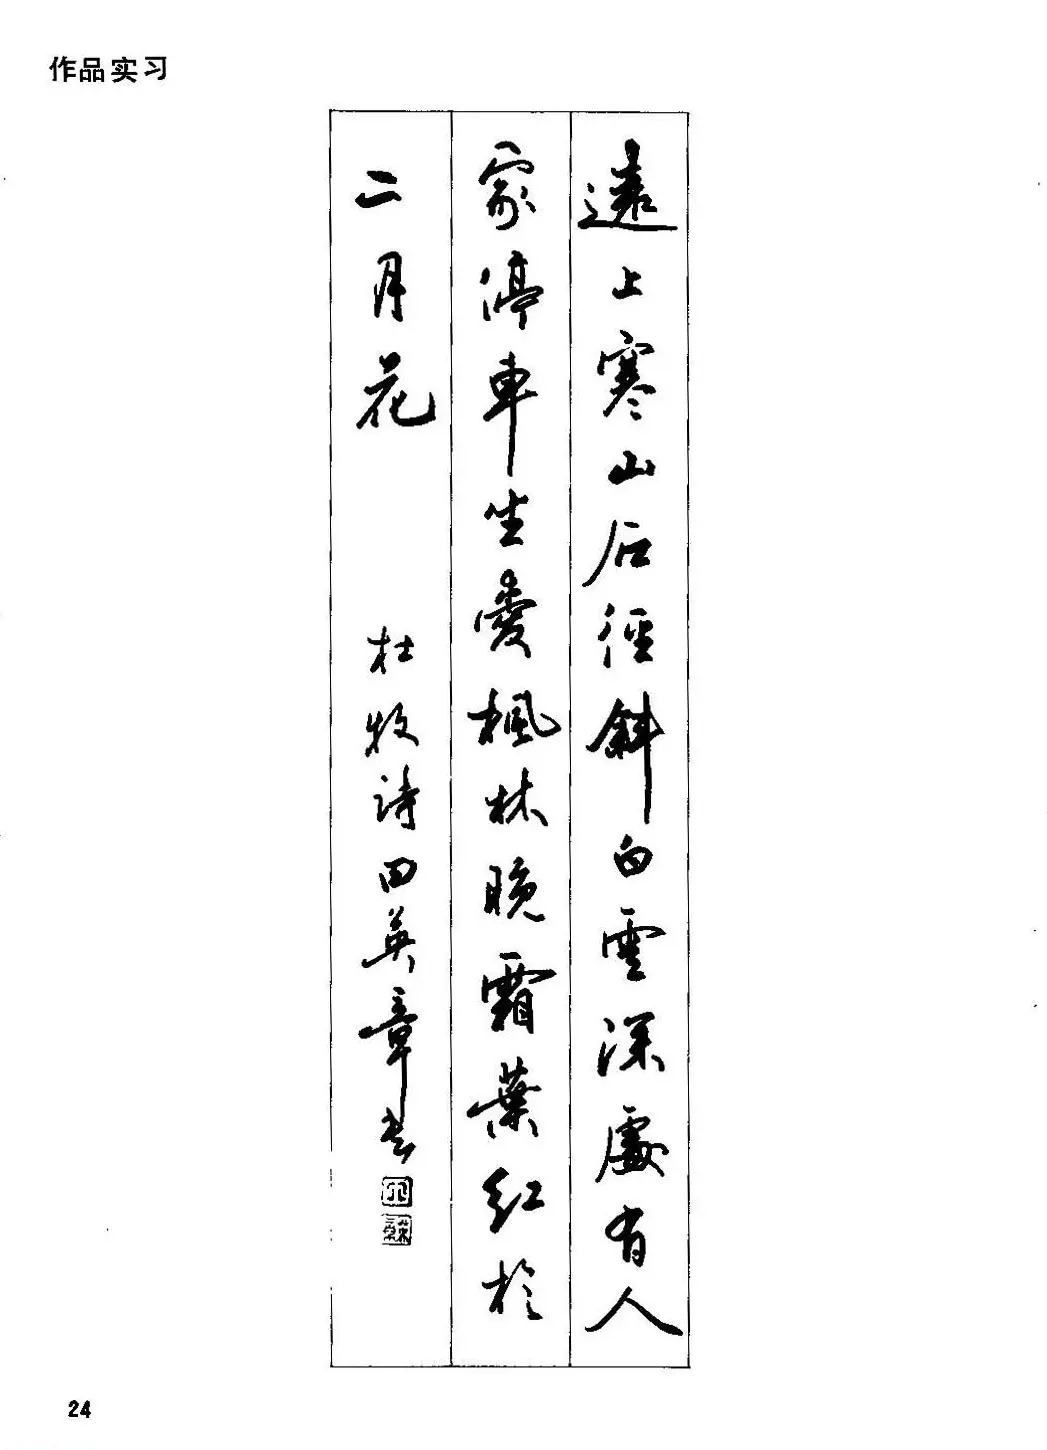 作品实习
遠上寒山石徑斜白雲深處有人
家停車坐愛楓林晚霜葉红於
二月花 杜牧诗田英章书
24